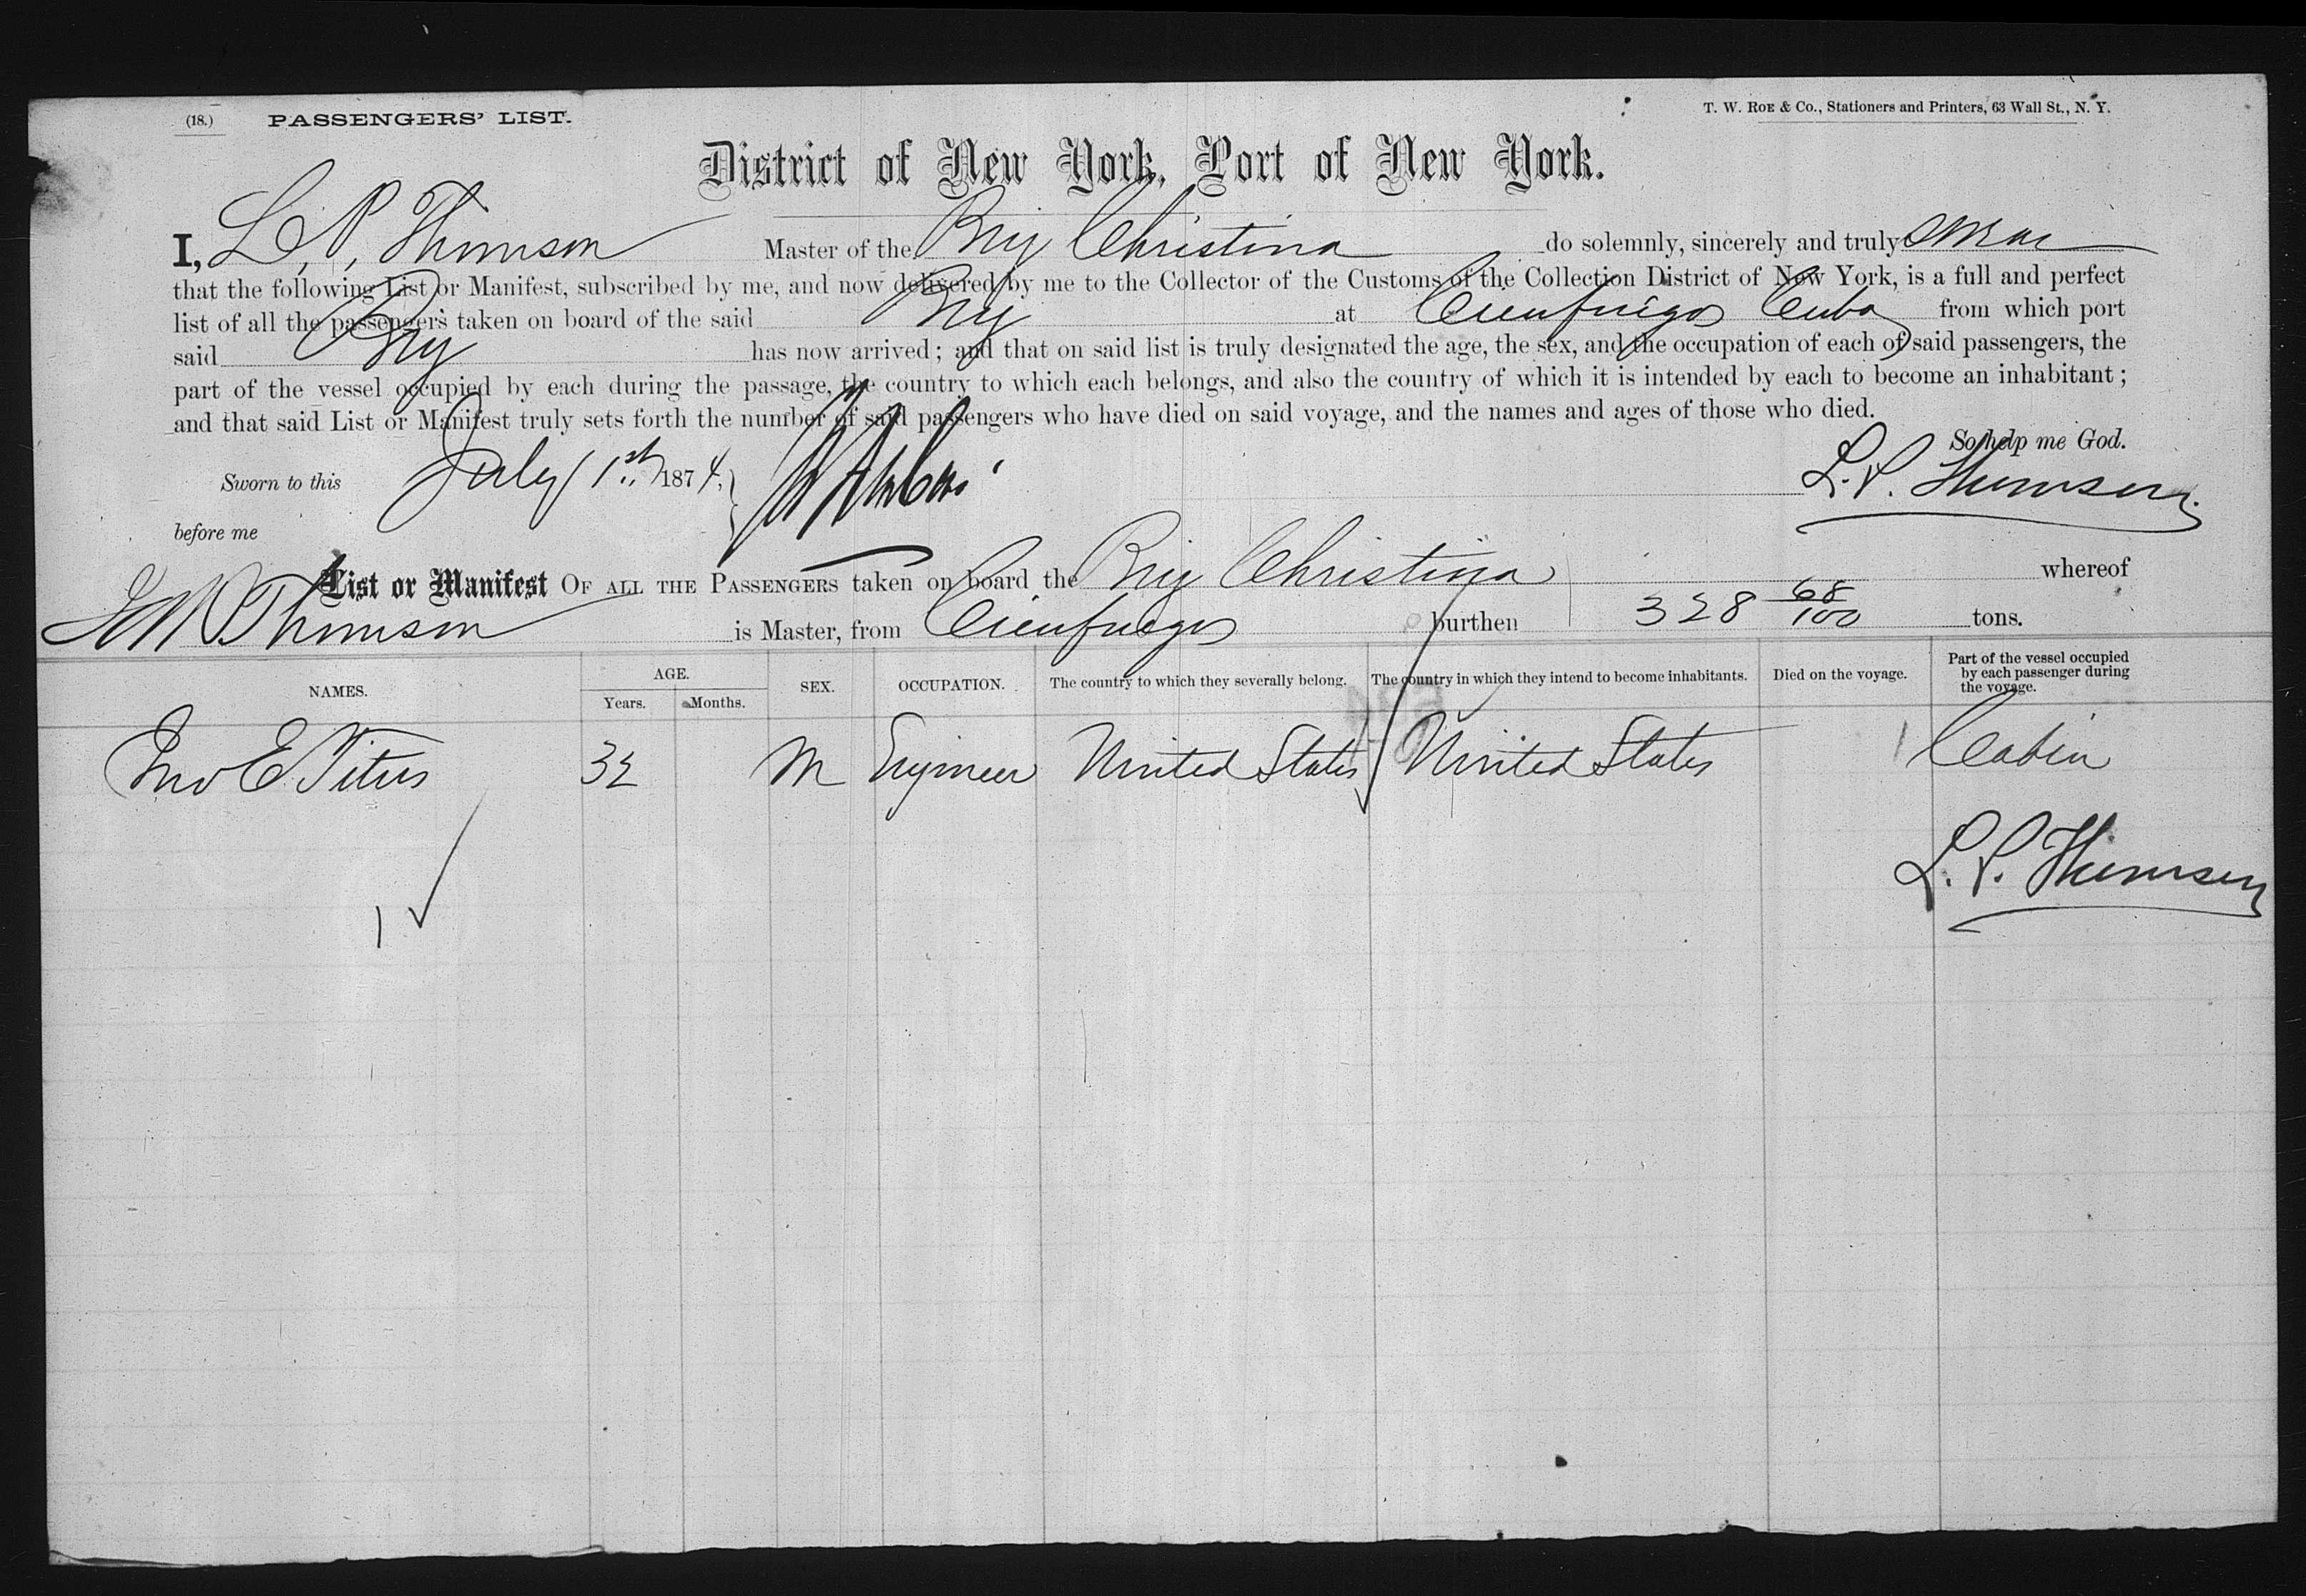 (18.) PASSENGERS' LIST.
T. W. ROE & Co., Stationers and Printers, 63 Wall St., N. Y.
District of New York, Port of New York.
I, L. P. Thomson Master of the Brig Christina do solemnly, sincerely and truly swear
that the following List or Manifest, subscribed by me, and now delivered by me to the Collector of the Customs of the Collection District of New York, is a full and perfect
list of all the passengers taken on board of the said Brig at Cienfuegos Cuba from which port
said Brig has now arrived; and that on said list is truly designated the age, the sex, and the occupation of each of said passengers, the
part of the vessel occupied by each during the passage, the country to which each belongs, and also the country of which it is intended by each to become an inhabitant;
and that said List or Manifest truly sets forth the number of said passengers who have died on said voyage, and the names and ages of those who died.
So help me God.
Sworn to this July 1st 1874,
L. P. Thomson
before me
List or Manifest OF ALL THE PASSENGERS taken on board the Brig Christina whereof
Thomson is Master, from Cienfuegos burthen 328 68/100 tons.
NAMES. AGE. Years. Months. SEX. OCCUPATION. The country to which they severally belong. The country in which they intend to become inhabitants. Died on the voyage. Part of the vessel occupied by each passenger during the voyage.
Jno E Titus 32 M Engineer United States United States 1 Cabin
L. P. Thomson
1